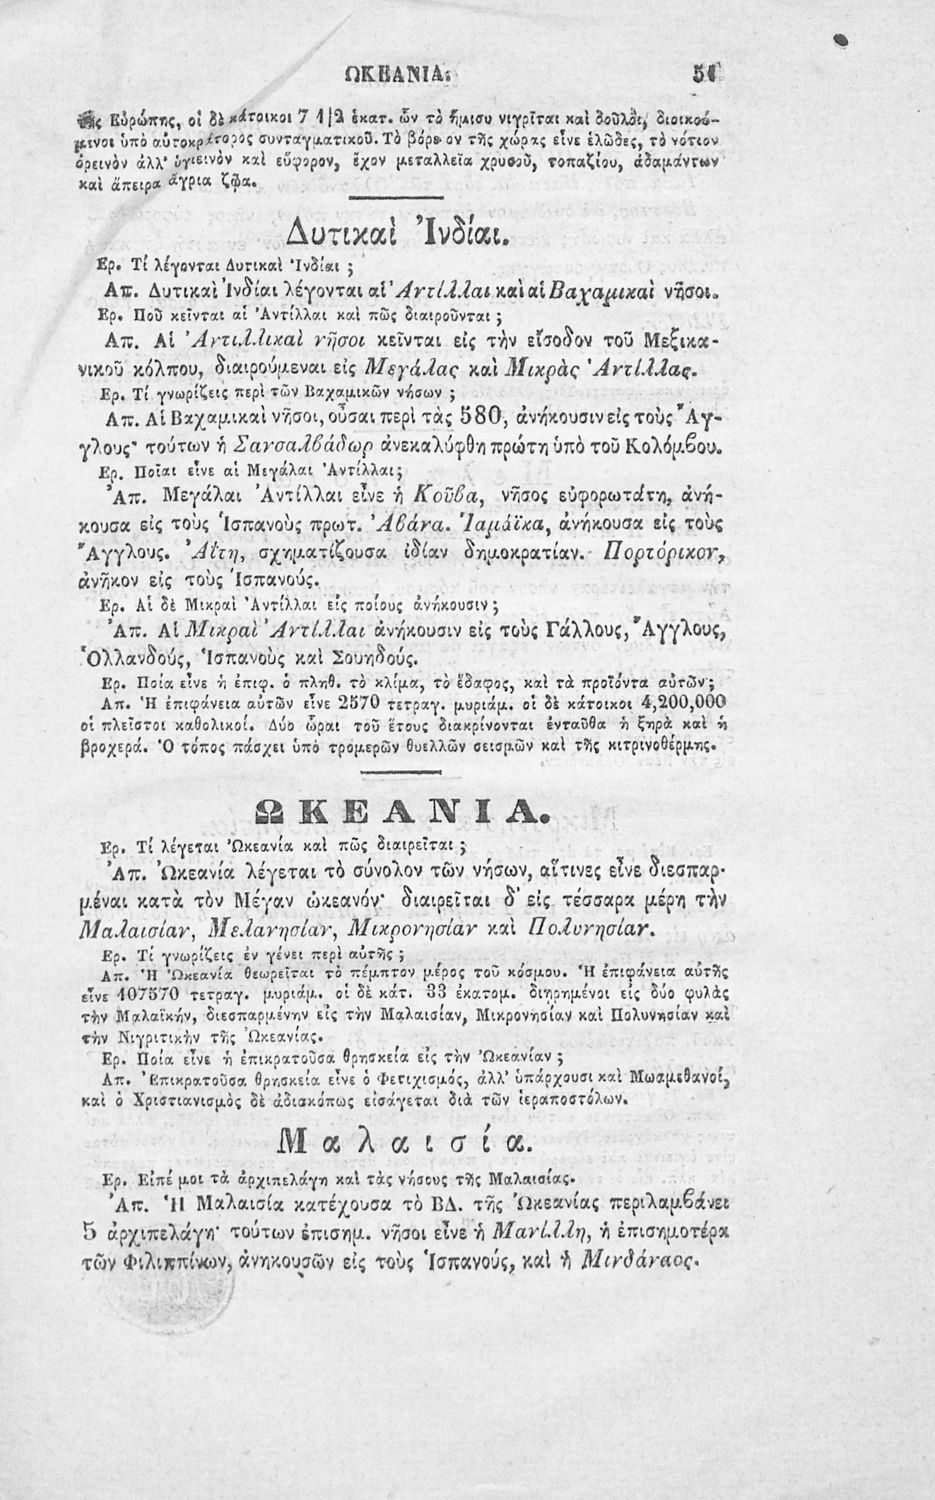 ΩΚΕΑΝΙΑ. 51
τῆς Εὐρώπης, οἱ δὲ κάτοικοι 7 1|2 ἑκατ. ὧν τὸ ἥμισυ νιγρῖται καὶ δοῦλοι, διοικού-
μενοι ὑπὸ αὐτοκράτορος συνταγματικοῦ. Τὸ βόρειον τῆς χώρας εἶνε ἑλῶδες, τὸ νότιον
ὀρεινὸν ἀλλ' ὑγιεινὸν καὶ εὔφορον, ἔχον μεταλλεῖα χρυσοῦ, τοπαζίου, ἀδαμάντων
καὶ ἄπειρα ἄγρια ζῷα.
Δυτικαὶ Ἰνδίαι.
Ερ. Τί λέγονται Δυτικαὶ Ἰνδίαι ;
Απ. Δυτικαὶ Ἰνδίαι λέγονται αἱ Ἀντίλλαι καὶ αἱ Βαχαμικαὶ νῆσοι.
Ερ. Ποῦ κεῖνται αἱ Ἀντίλλαι καὶ πῶς διαιροῦνται ;
Απ. Αἱ Ἀντιλλικαὶ νῆσοι κεῖνται εἰς τὴν εἴσοδον τοῦ Μεξικα-
νικοῦ κόλπου, διαιρούμεναι εἰς Μεγάλας καὶ Μικρὰς Ἀντίλλας.
Ερ. Τί γνωρίζεις περὶ τῶν Βαχαμικῶν νήσων ;
Απ. Αἱ Βαχαμικαὶ νῆσοι, οὖσαι περὶ τὰς 580, ἀνήκουσιν εἰς τοὺς Ἄγ-
γλους· τούτων ἡ Σανσαλβάδωρ ἀνεκαλύφθη πρώτη ὑπὸ τοῦ Κολόμβου.
Ερ. Ποῖαι εἶνε αἱ Μεγάλαι Ἀντίλλαι;
Ἀπ. Μεγάλαι Ἀντίλλαι εἶνε ἡ Κοῦβα, νῆσος εὐφορωτάτη, ἀνή-
κουσα εἰς τοὺς Ἱσπανοὺς πρωτ. Ἀβάνα. Ἰαμάϊκα, ἀνήκουσα εἰς τοὺς
Ἄγγλους. Ἀΐτη, σχηματίζουσα ἰδίαν δημοκρατίαν. Πορτόρικον,
ἀνῆκον εἰς τοὺς Ἱσπανούς.
Ερ. Αἱ δὲ Μικραὶ Ἀντίλλαι εἰς ποίους ἀνήκουσιν ;
Ἀπ. Αἱ Μικραὶ Ἀντίλλαι ἀνήκουσιν εἰς τοὺς Γάλλους, Ἄγγλους,
Ὁλλανδούς, Ἱσπανοὺς καὶ Σουηδούς.
Ερ. Ποία εἶνε ἡ ἐπιφ. ὁ πληθ. τὸ κλίμα, τὸ ἔδαφος, καὶ τὰ προϊόντα αὐτῶν ;
Απ. Ἡ ἐπιφάνεια αὐτῶν εἶνε 2570 τετραγ. μυριάμ. οἱ δὲ κάτοικοι 4,200,000
οἱ πλεῖστοι καθολικοί. Δύο ὧραι τοῦ ἔτους διακρίνονται ἐνταῦθα ἡ ξηρὰ καὶ ἡ
βροχερά. Ὁ τόπος πάσχει ὑπὸ τρομερῶν θυελλῶν σεισμῶν καὶ τῆς κιτρινοθέρμης.
ΩΚΕΑΝΙΑ.
Ερ. Τί λέγεται Ὠκεανία καὶ πῶς διαιρεῖται ;
Ἀπ. Ὠκεανία λέγεται τὸ σύνολον τῶν νήσων, αἵτινες εἶνε διεσπαρ-
μέναι κατὰ τὸν Μέγαν ὠκεανόν· διαιρεῖται δ' εἰς τέσσαρα μέρη τὴν
Μαλαισίαν, Μελανησίαν, Μικρονησίαν καὶ Πολυνησίαν.
Ερ. Τί γνωρίζεις ἐν γένει περὶ αὐτῆς ;
Απ. Ἡ Ὠκεανία θεωρεῖται τὸ πέμπτον μέρος τοῦ κόσμου. Ἡ ἐπιφάνεια αὐτῆς
εἶνε 107570 τετραγ. μυριάμ. οἱ δὲ κάτ. 33 ἑκατομ. διῃρημένοι εἰς δύο φυλὰς
τὴν Μαλαϊκήν, διεσπαρμένην εἰς τὴν Μαλαισίαν, Μικρονησίαν καὶ Πολυνησίαν καὶ
τὴν Νιγριτικὴν τῆς Ὠκεανίας.
Ερ. Ποία εἶνε ἡ ἐπικρατοῦσα θρησκεία εἰς τὴν Ὠκεανίαν ;
Απ. Ἐπικρατοῦσα θρησκεία εἶνε ὁ Φετιχισμός, ἀλλ' ὑπάρχουσι καὶ Μωαμεθανοί,
καὶ ὁ Χριστιανισμὸς δὲ ἀδιακόπως εἰσάγεται διὰ τῶν ἱεραποστόλων.
Μαλαισία.
Ερ. Εἰπέ μοι τὰ ἀρχιπελάγη καὶ τὰς νήσους τῆς Μαλαισίας.
Ἀπ. Ἡ Μαλαισία κατέχουσα τὸ ΒΔ. τῆς Ὠκεανίας περιλαμβάνει
5 ἀρχιπελάγη· τούτων ἐπισημ. νῆσοι εἶνε ἡ Μανίλλη, ἡ ἐπισημοτέρα
τῶν Φιλιππίνων, ἀνηκουσῶν εἰς τοὺς Ἱσπανούς, καὶ ἡ Μινδάναος.